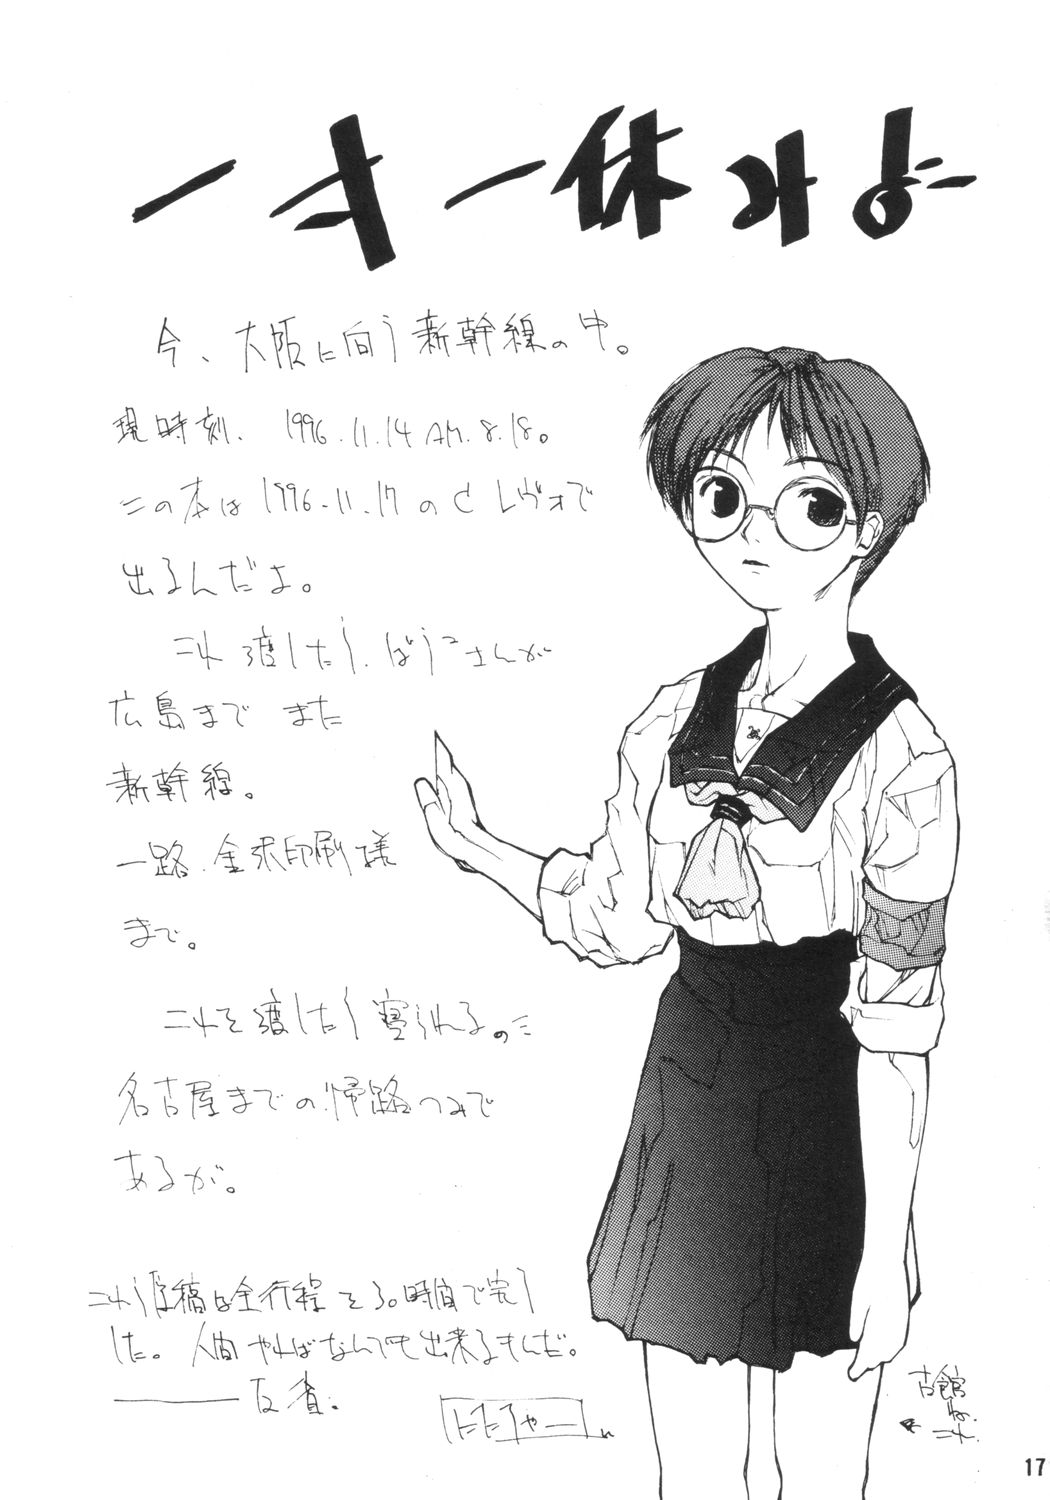 今、大阪に向う新幹線の中。
現時刻、1996.11.14 AM.8.18。
この本は1996.11.17のCレヴォで
出るんだよ。
これ渡したら、ばうこさんが
広島まで また
新幹線。
一路、金沢印刷様
まで。
これを渡したら寝られるのに
名古屋までの帰路つみで
あるが。
これら原稿は全行程を30時間で完了
した。人間やればなんでも出来るもんだ。
――反省。
古館
これ。
17